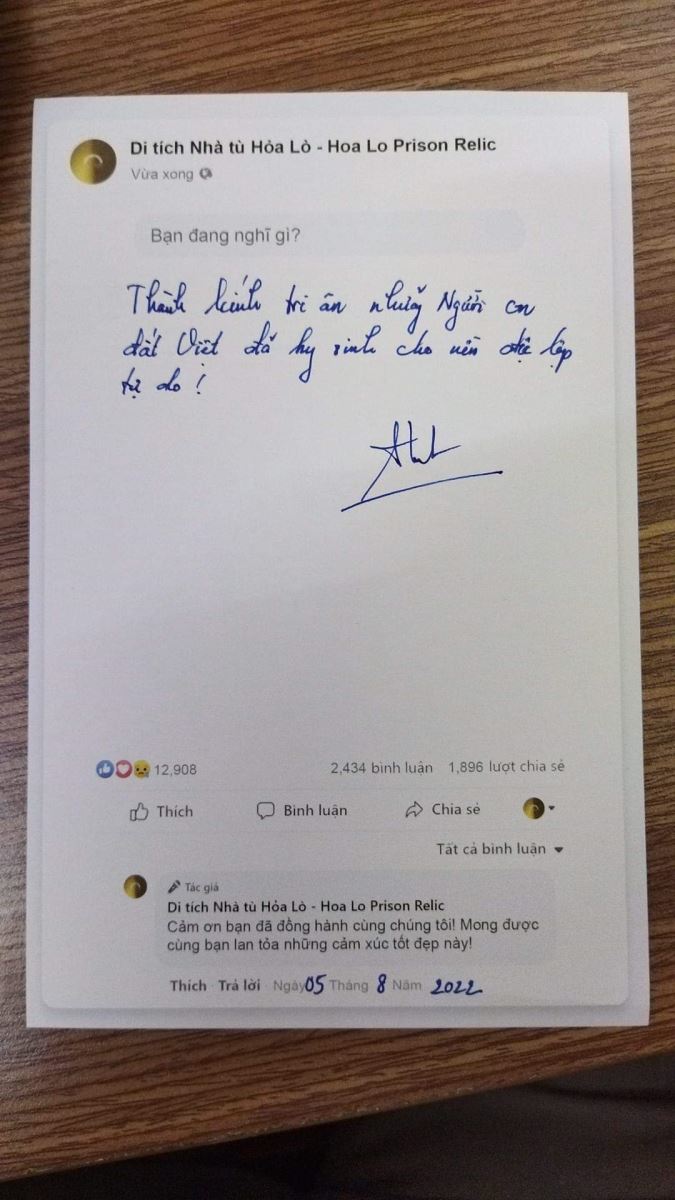 Di tích Nhà tù Hỏa Lò - Hoa Lo Prison Relic
Vừa xong
Bạn đang nghĩ gì?
Thành kính tri ân những Người con
đất Việt đã hy sinh cho nền độc lập
tự do!
12,908
2,434 bình luận 1,896 lượt chia sẻ
Thích Bình luận Chia sẻ
Tất cả bình luận
Tác giả
Di tích Nhà tù Hỏa Lò - Hoa Lo Prison Relic
Cảm ơn bạn đã đồng hành cùng chúng tôi! Mong được
cùng bạn lan tỏa những cảm xúc tốt đẹp này!
Thích · Trả lời · Ngày 05 Tháng 8 Năm 2022